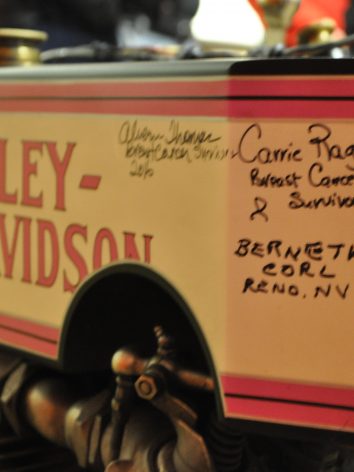 LEY-
VIDSON
Breast Cancer Survivor
2016
Carrie Rag
Breast Cance
Survivo
BERNETH
CORL
RENO, NV